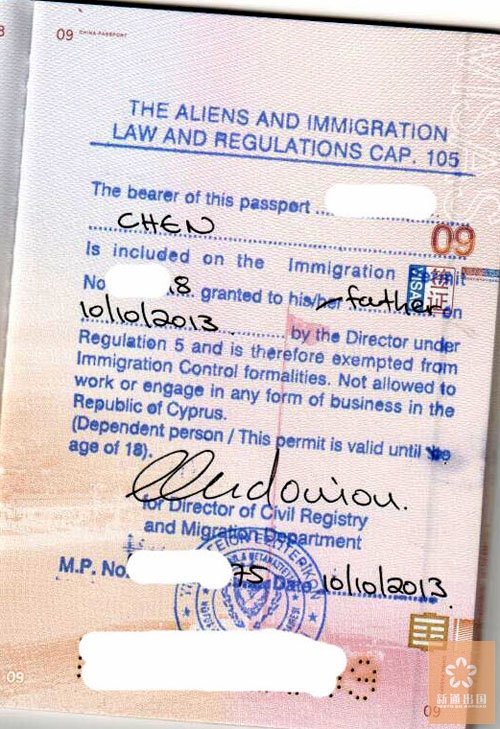 09 CHINA PASSPORT
THE ALIENS AND IMMIGRATION
LAW AND REGULATIONS CAP. 105
The bearer of this passport
CHEN
Is included on the Immigration Permit
No 18 granted to his/her father on
10/10/2013 by the Director under
Regulation 5 and is therefore exempted from
Immigration Control formalities. Not allowed to
work or engage in any form of business in the
Republic of Cyprus.
(Dependent person / This permit is valid until the
age of 18).
for Director of Civil Registry
and Migration Department
M.P. No. 75 Date 10/10/2013.
09
签证
VISAS
09
09
新通出国